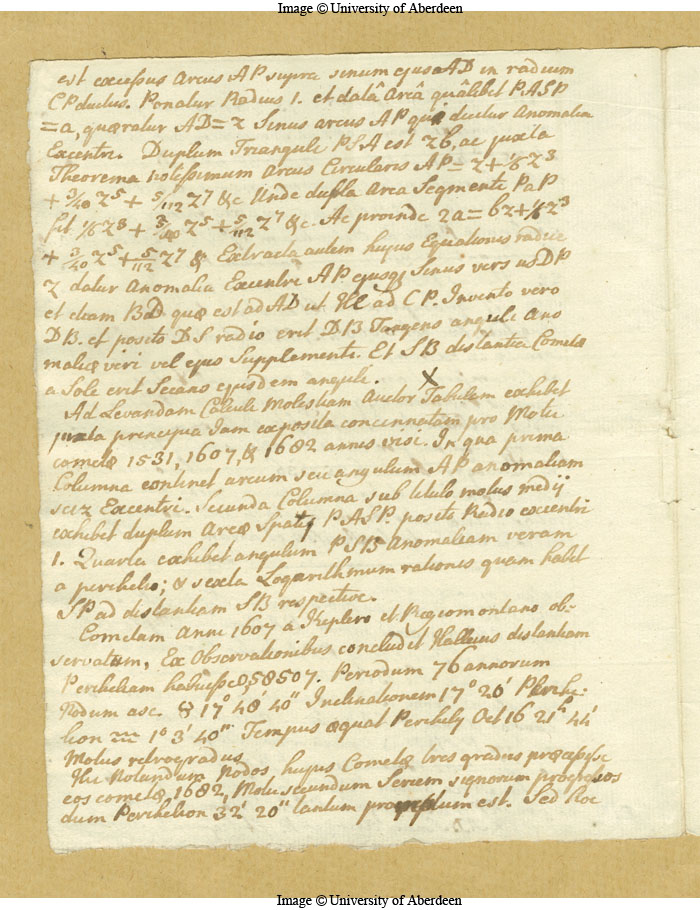 Image © University of Aberdeen
est excessus Arcus AP supra sinum ejus AD in radium
CP ductus. Ponatur Radius 1. et datâ Areâ quâlibet PASP
= a, quæratur AD = z Sinus arcus AP quo ducitur Anomalia
Excentri. Duplum Trianguli PSA est zb, ac juxta
Theorema notissimum Arcus Circularis AP = z + 1/6 z3
+ 3/40 z5 + 5/112 z7 &c Unde dupla Area Segmenti PaP
fit 1/6 z3 + 3/40 z5 + 5/112 z7 &c. Ac proinde 2a = bz + 1/6 z3
+ 3/40 z5 + 5/112 z7 & Extracta autem hujus Equationis radice
z datur Anomalia Excentri AP ejusq Sinus versus DP
et etiam BD quæ est ad AD ut ad CP. Invento vero
DB. et posito DS radio erit DB Tangens anguli Ano
maliæ veri vel ejus Supplementi. Et SB distantia Cometæ
a Sole erit Secans ejusdem anguli. X
Ad Levandam Calculi Molestiam Auctor Tabulam exhibet
juxta principia Jam exposita concinnatam pro Motu
cometæ 1531, 1607, & 1682 annis visi. In qua prima
Columna continet arcum seu angulum AP anomaliam
sciz Excentri. Secunda Columna sub titulo motus medij
exhibet duplum Areæ Spatij PASP. posito Radio excentri
1. Quarta exhibet angulum PSB Anomaliam veram
a perihelio; & sexta Logarithmum rationis quam habet
SP ad distantiam SB respective.
Cometam Anni 1607 a Keplero et Regiomontano ob-
servatum, Ex Observationibus concludit Halleius distantiam
Periheliam habuisse 0,58507. Periodum 76 annorum
Nodum asc. ♉ 17° 48' 40" Inclinationem 17° 26' Perihe:
lion ♒ 1° 3' 40". Tempus æquat Perihelij Oct 16 21h 44'
Motus retrogradus
Hic Notandum Nodos hujus Cometæ tres gradus præcessisse
eos cometæ 1682, Motu secundum Seriem signorum
dum Perihelion 32' 20" tantum est. Sed hoc
Image © University of Aberdeen